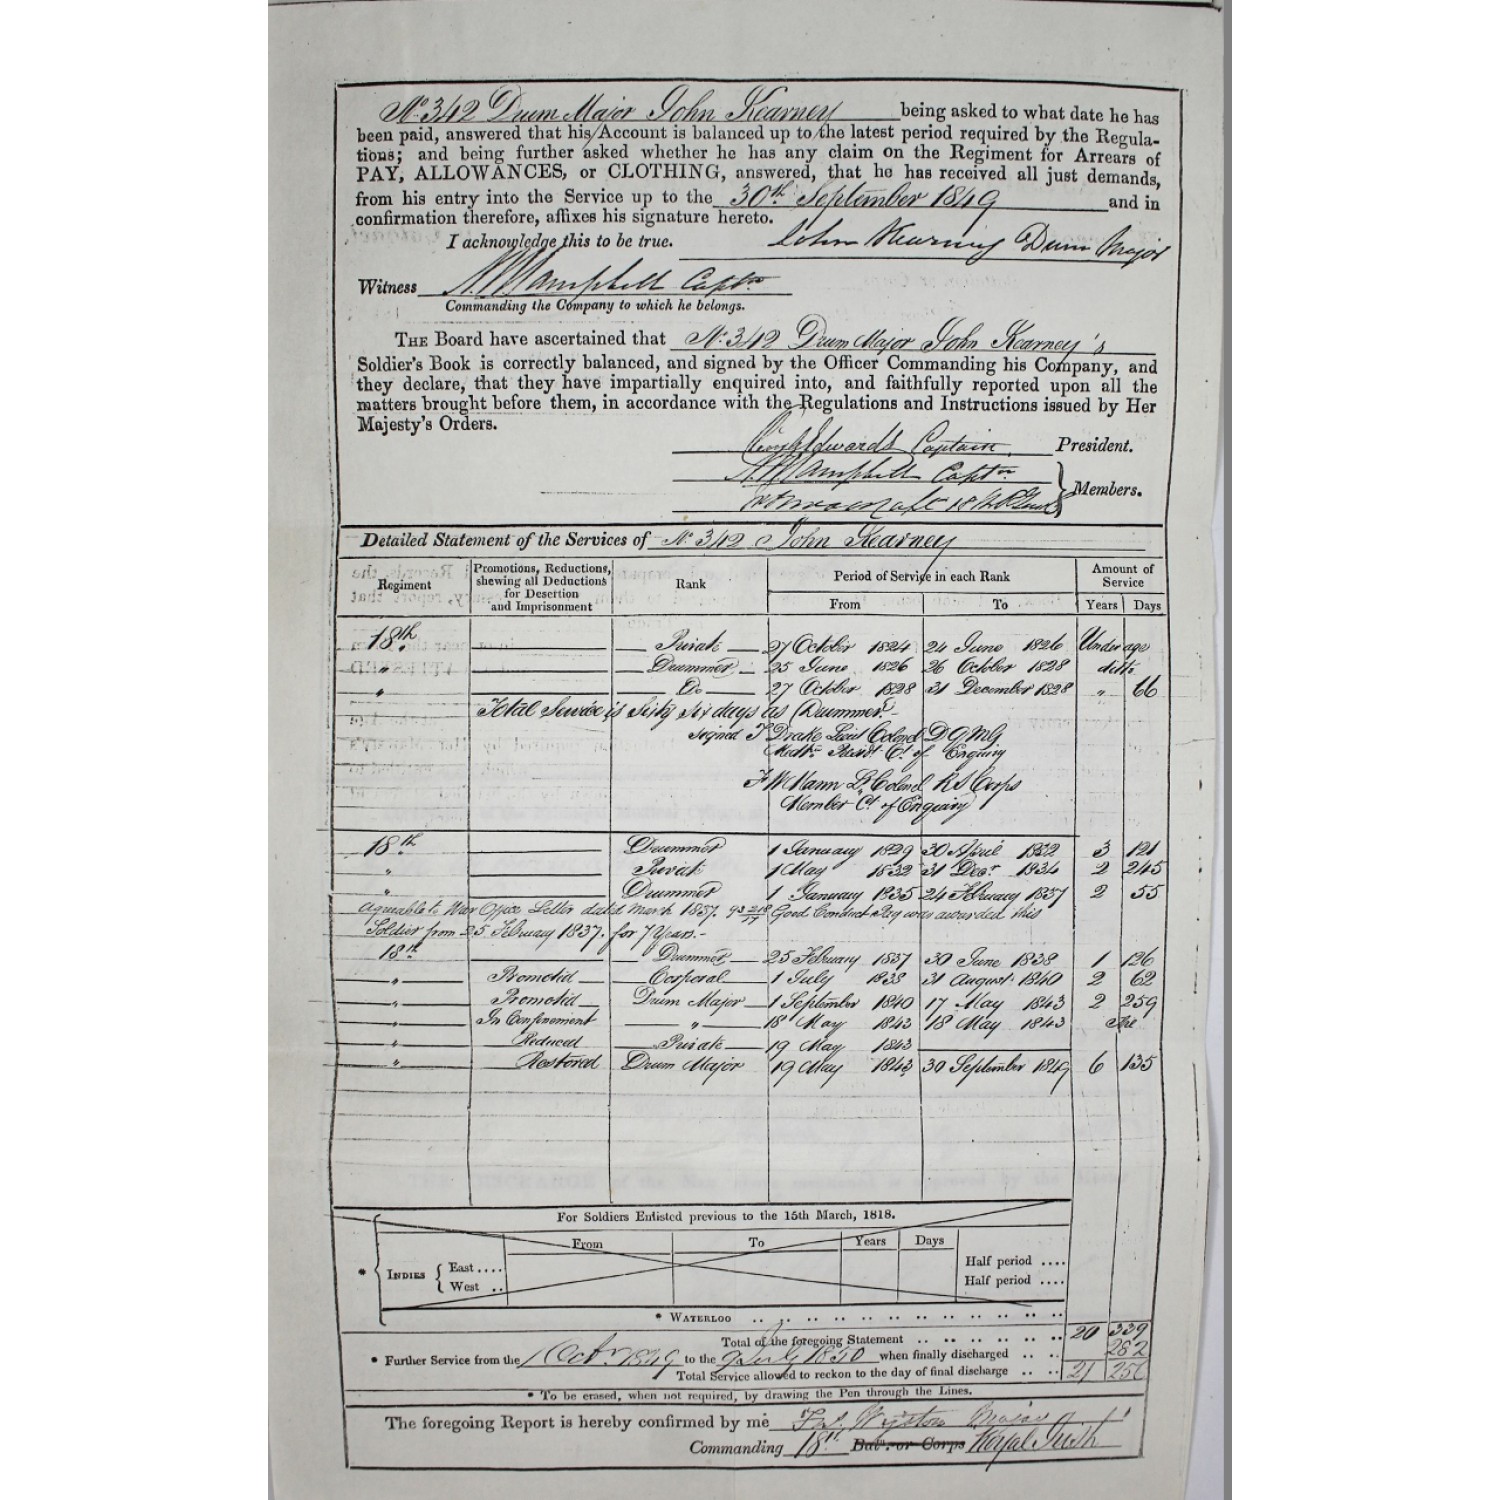 No 342 Drum Major John Kearney being asked to what date he has
been paid, answered that his Account is balanced up to the latest period required by the Regula-
tions; and being further asked whether he has any claim on the Regiment for Arrears of
PAY, ALLOWANCES, or CLOTHING, answered, that he has received all just demands,
from his entry into the Service up to the 30th September 1849 and in
confirmation therefore, affixes his signature hereto.
I acknowledge this to be true. John Kearney Drum Major
Witness Campbell Captn
Commanding the Company to which he belongs.
THE Board have ascertained that No. 342 Drum Major John Kearney's
Soldier's Book is correctly balanced, and signed by the Officer Commanding his Company, and
they declare, that they have impartially enquired into, and faithfully reported upon all the
matters brought before them, in accordance with the Regulations and Instructions issued by Her
Majesty's Orders.
Edwards Captain President.
Campbell Captn
Members.
Detailed Statement of the Services of No. 342 John Kearney
Regiment Promotions, Reductions, shewing all Deductions for Desertion and Imprisonment Rank Period of Service in each Rank Amount of Service
From To Years Days
18th Private 27 October 1824 24 June 1826 Under age
" Drummer 25 June 1826 26 October 1828 ditto
" Do 27 October 1828 31 December 1828 " 66
Total Service is Sixty six days as Drummer.-
signed T Drake Lieut Colonel D Q M G
Presidt Ct. of Enquiry
F W Mann Lt Colonel R S Corps
Member Ct. of Enquiry
18th Drummer 1 January 1829 30 April 1832 3 121
" Private 1 May 1832 31 Decr 1834 2 245
" Drummer 1 January 1835 24 February 1837 2 55
Agreeable to War Office Letter dated March 1857. Good Conduct Pay was awarded this
Soldier from 25 February 1837. for 7 Years.-
18th Drummer 25 February 1837 30 June 1838 1 126
" Promoted Corporal 1 July 1838 31 August 1840 2 62
" Promoted Drum Major 1 September 1840 17 May 1843 2 259
" In Confinement " 18 May 1843 18 May 1843
" Reduced Private 19 May 1843
" Restored Drum Major 19 May 1843 30 September 1849 6 135
For Soldiers Enlisted previous to the 15th March, 1818.
From To Years Days
* INDIES { East .... Half period ....
West .. Half period ....
* WATERLOO .. .. .. .. .. .. .. .. .. .. .. ..
Total of the foregoing Statement .. .. .. .. .. .. 20 339
* Further Service from the 1 Octr 1849 to the 9 July 1850 when finally discharged .. .. 282
Total Service allowed to reckon to the day of final discharge .. .. 21 256
* To be erased, when not required, by drawing the Pen through the Lines.
The foregoing Report is hereby confirmed by me Major
Commanding 18th Bat. or Corps Royal Irish